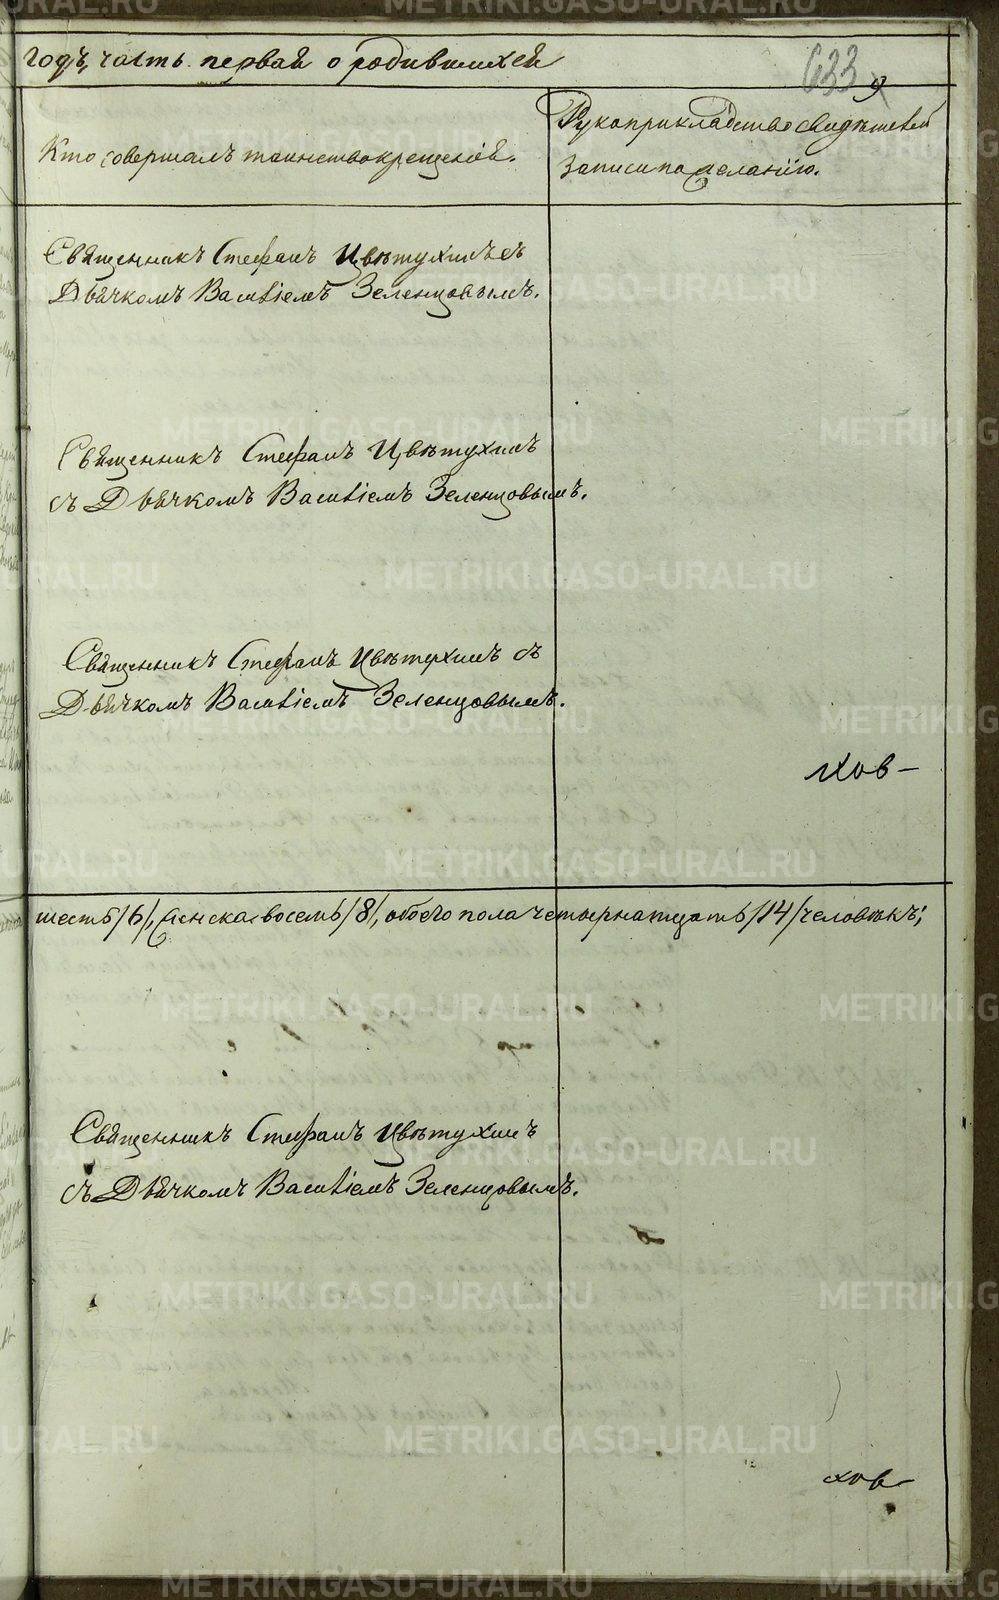 годъ, часть первая о родившихся
633
9
Кто совершалъ таинство крещенія.
Рукоприкладство свидѣтелей
записи по желанію.
Священникъ Стефанъ Цвѣтухинъ съ
Дьячкомъ Василіемъ Зеленцовымъ.
Священникъ Стефанъ Цвѣтухинъ
съ Дьячкомъ Василіемъ Зеленцовымъ.
Священникъ Стефанъ Цвѣтухинъ съ
Дьячкомъ Василіемъ Зеленцовымъ.
хов-
шесть /6/, женска восемь /8/, обоего пола четырнатцать /14/ человѣкъ;
Священникъ Стефанъ Цвѣтухинъ
съ Дьячкомъ Василіемъ Зеленцовымъ.
хов-
METRIKI.GASO-URAL.RU